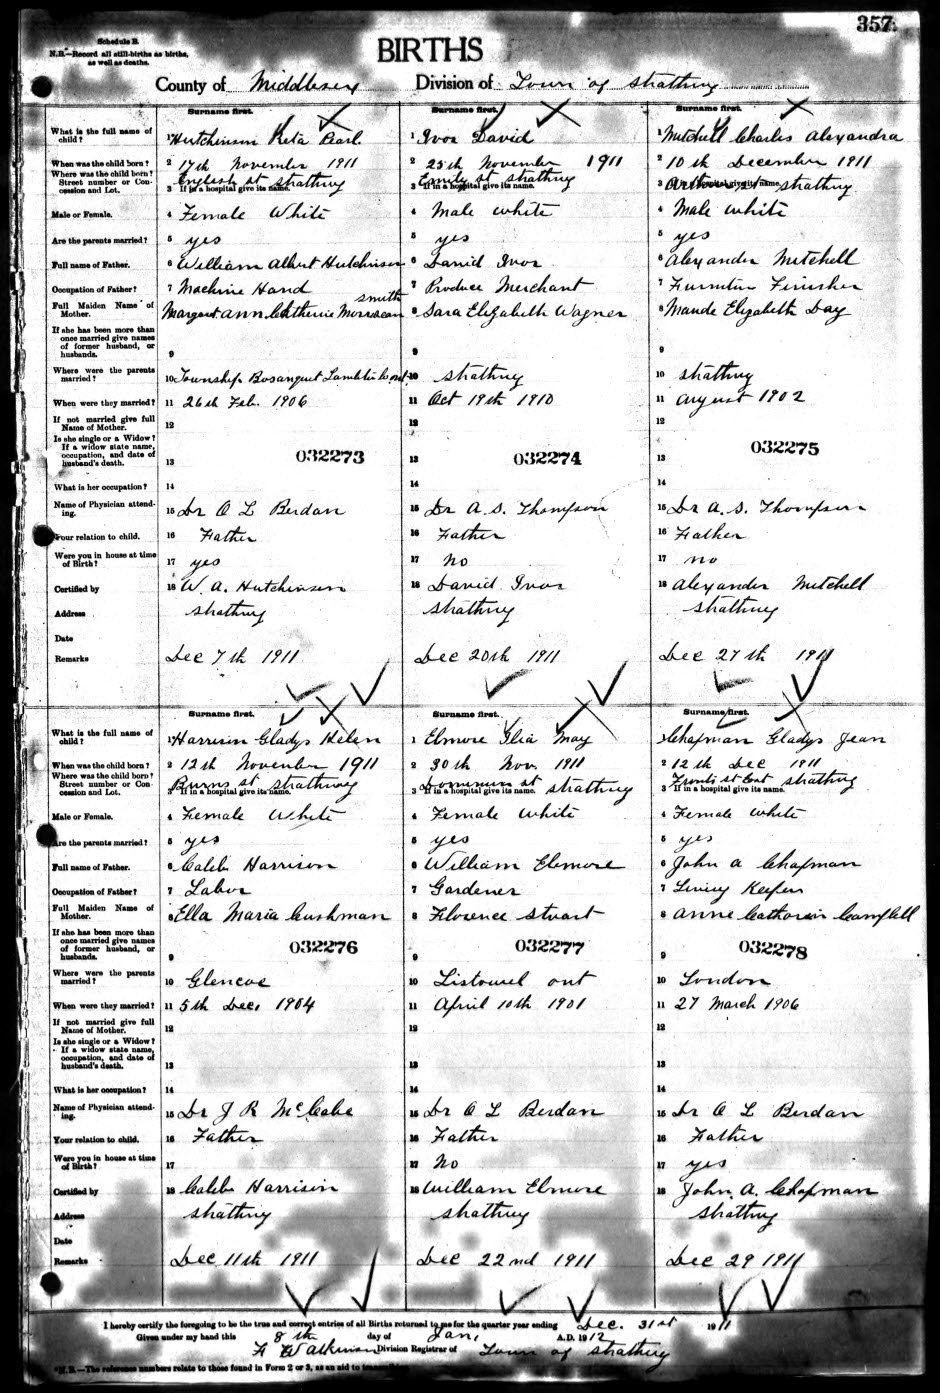 357.
Schedule B.
N.B.—Record all still-births as births,
as well as deaths.
BIRTHS
County of Middlesex Division of Town of Strathroy
Surname first. Surname first. Surname first.
What is the full name of
child? 1 Hutchinson Reta Pearl 1 Ivor David 1 Mitchell Charles Alexandra
When was the child born? 2 17th November 1911 2 25th November 1911 2 10th December 1911
Where was the child born?
Street number or Con-
cession and Lot. English st strathroy Emily st strathroy st strathroy
3 If in a hospital give its name. 3 If in a hospital give its name. 3 If in a hospital give its name.
Male or Female. 4 Female White 4 Male white 4 Male white
Are the parents married? 5 yes 5 yes 5 yes
Full name of Father. 6 William Albert Hutchinson 6 David Ivor 6 Alexander Mitchell
Occupation of Father? 7 Machine Hand 7 Produce Merchant 7 Furnitur Finisher
smith
Full Maiden Name of
Mother. 8 Margaret ann Catherine 8 Sara Elizabeth Wagner 8 Maude Elizabeth Day
If she has been more than
once married give names
of former husband, or
husbands. 9 9 9
Where were the parents
married? 10 Township Bosanquet Lambton Co ont 10 strathroy 10 strathroy
When were they married? 11 26th Feb. 1906 11 Oct 19th 1910 11 august 1902
If not married give full
Name of Mother. 12 12 12
Is she single or a Widow?
If a widow state name,
occupation, and date of
husband's death. 13 032273 13 032274 13 032275
What is her occupation? 14 14 14
Name of Physician attend-
ing. 15 Dr O L Berdan 15 Dr A. S. Thompson 15 Dr A. S. Thompson
Your relation to child. 16 Father 16 Father 16 Father
Were you in house at time
of Birth? 17 yes 17 No 17 no
Certified by 18 W. A. Hutchinson 18 David Ivor 18 Alexander Mitchell
Address strathroy strathroy strathroy
Date
Remarks Dec 7th 1911 Dec 20th 1911 Dec 27th 1911
Surname first. Surname first. Surname first.
What is the full name of
child? 1 Harrison Gladys Helen 1 Elmore Ilia May 1 Chapman Gladys Jean
When was the child born? 2 12th November 1911 2 30th Nov. 1911 2 12th Dec 1911
Where was the child born?
Street number or Con-
cession and Lot. Burns st strathroy Dominion st strathroy Front st East strathroy
3 If in a hospital give its name. 3 If in a hospital give its name. 3 If in a hospital give its name.
Male or Female. 4 Female White 4 Female white 4 Female white
Are the parents married? 5 yes 5 yes 5 yes
Full name of Father. 6 Caleb Harrison 6 William Elmore 6 John A Chapman
Occupation of Father? 7 Labor 7 Gardener 7 Livery Keeper
Full Maiden Name of
Mother. 8 Ella Maria Cushman 8 Florence Stuart 8 Anne Campbell
If she has been more than
once married give names
of former husband, or
husbands. 9 032276 9 032277 9 032278
Where were the parents
married? 10 Glencoe 10 Listowel ont 10 London
When were they married? 11 5th Dec. 1904 11 April 10th 1901 11 27 March 1906
If not married give full
Name of Mother. 12 12 12
Is she single or a Widow?
If a widow state name,
occupation, and date of
husband's death. 13 13 13
What is her occupation? 14 14 14
Name of Physician attend-
ing. 15 Dr J R McCabe 15 Dr O L Berdan 15 Dr O L Berdan
Your relation to child. 16 Father 16 Father 16 Father
Were you in house at time
of Birth? 17 17 No 17 yes
Certified by 18 Caleb Harrison 18 William Elmore 18 John A. Chapman
Address strathroy strathroy strathroy
Date
Remarks Dec 11th 1911 Dec 22nd 1911 Dec 29 1911
I hereby certify the foregoing to be the true and correct entries of all Births returned to me for the quarter year ending Dec. 31st 1911
Given under my hand this 8th day of Jan. A.D. 1912
Division Registrar of Town of strathroy
N.B.—The reference numbers relate to those found in Form 2 or 3, as an aid to